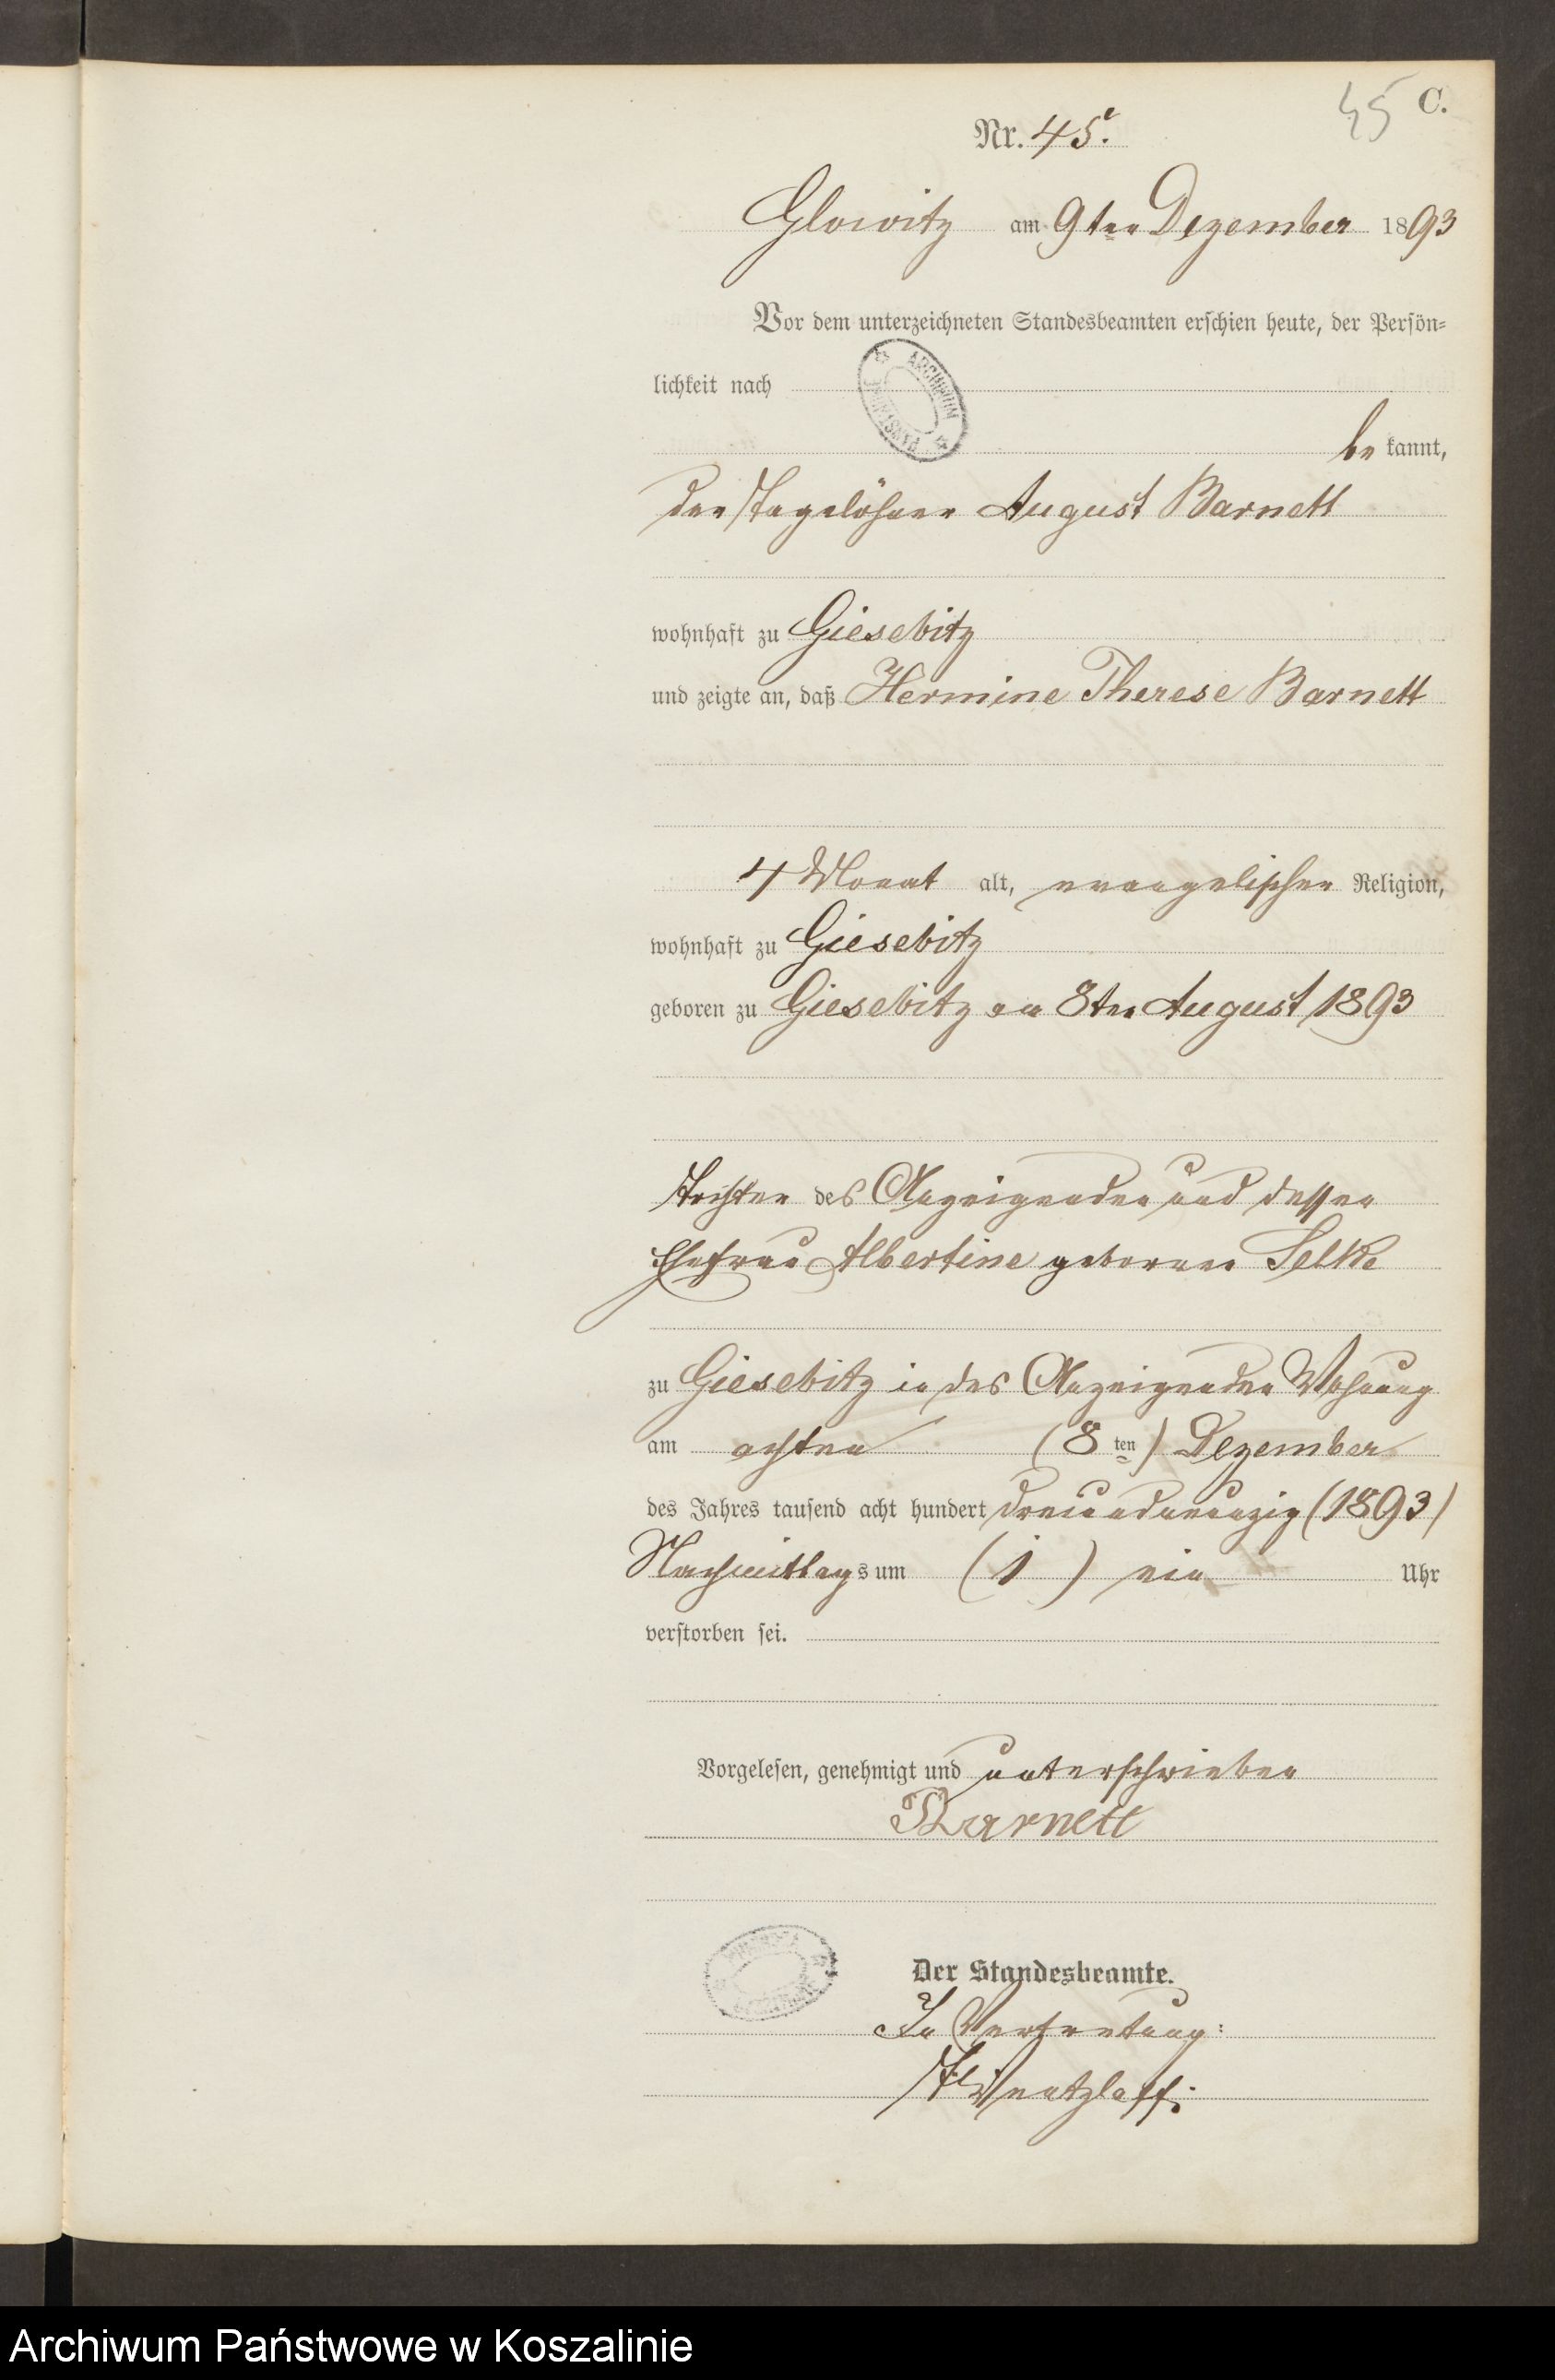 45 C.
Nr. 45.
Glowitz am 9ten Dezember 1893
Vor dem unterzeichneten Standesbeamten erschien heute, der Persön-
lichkeit nach
ARCHIWUM PAŃSTWOWE
be kannt,
der Tagelöhner August Barnett
wohnhaft zu Giesebitz
und zeigte an, daß Hermine Therese Barnett
4 Monat alt, evangelischer Religion,
wohnhaft zu Giesebitz
geboren zu Giesebitz am 8ten August 1893
Tochter des Anzeigenden und dessen
Ehefrau Albertine geborener Selke
zu Giesebitz in des Anzeigenden Wohnung
am achten (8 ten) Dezember
des Jahres tausend acht hundert dreiundneunzig (1893)
Nachmittags um (1) ein Uhr
verstorben sei.
Vorgelesen, genehmigt und unterschrieben
Barnett
Der Standesbeamte.
In Vertretung:
Wentzlaff.
Archiwum Państwowe w Koszalinie